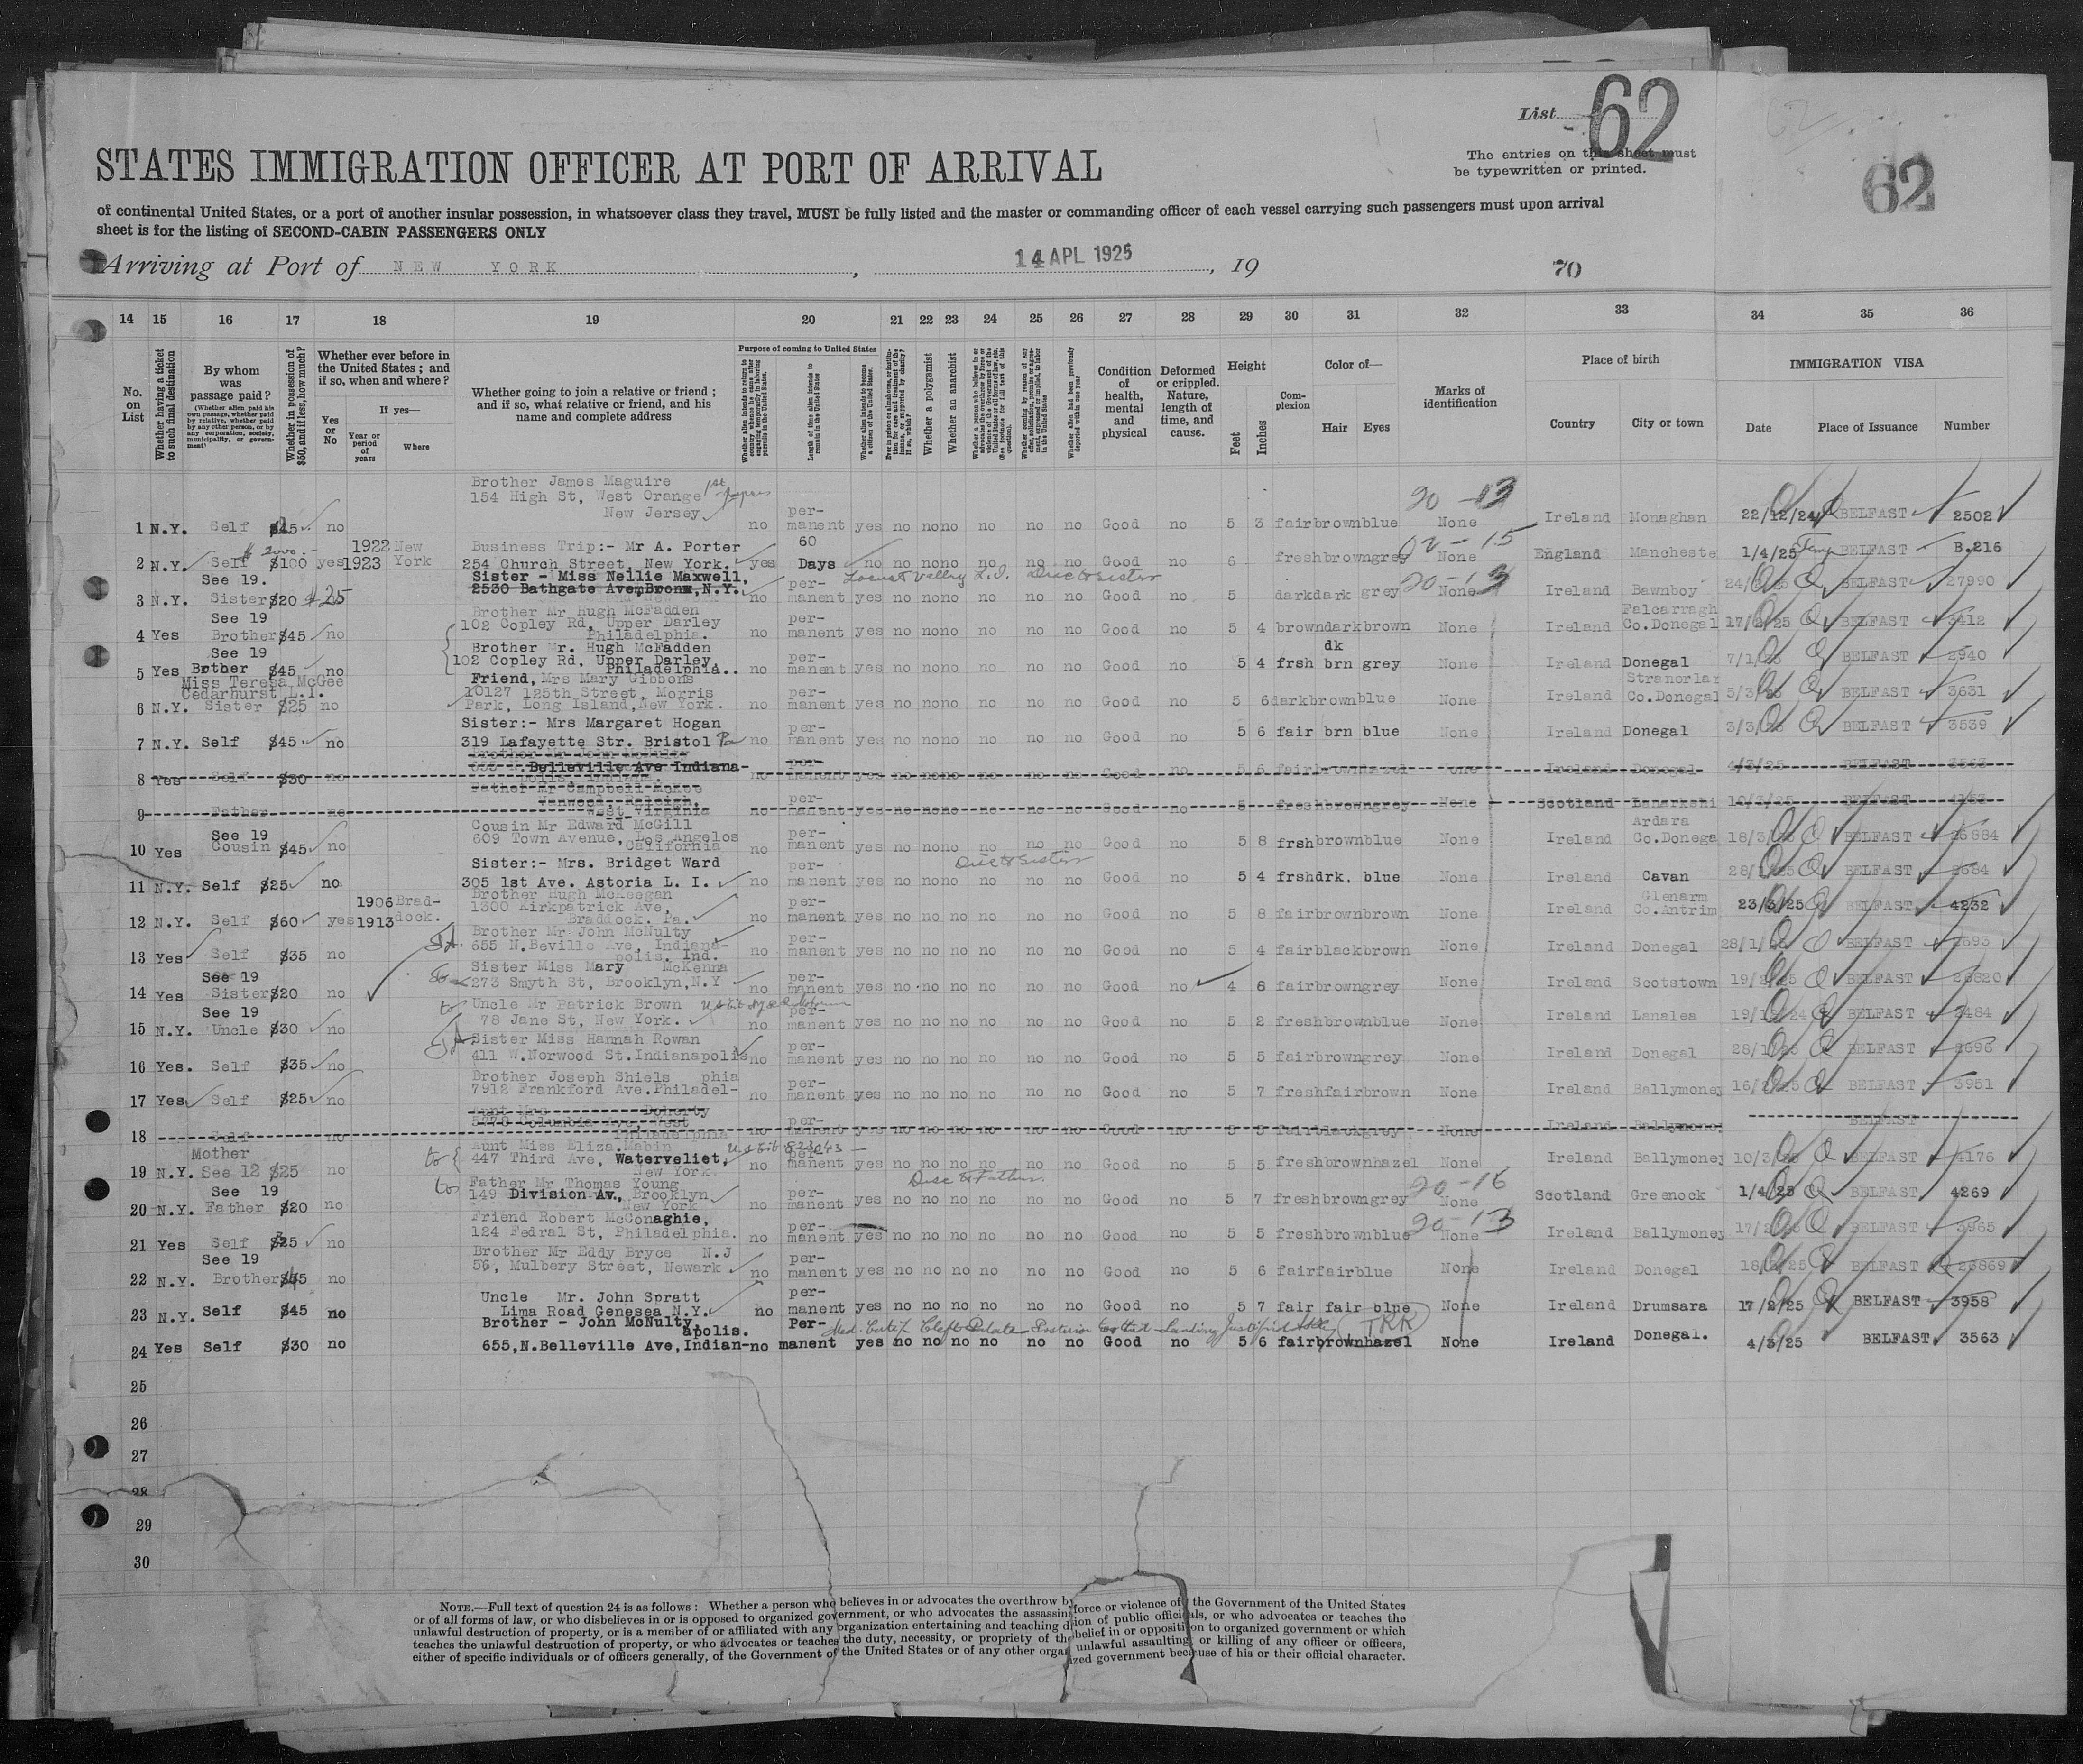 List 62
62
The entries on this sheet must
be typewritten or printed.
62
STATES IMMIGRATION OFFICER AT PORT OF ARRIVAL
of continental United States, or a port of another insular possession, in whatsoever class they travel, MUST be fully listed and the master or commanding officer of each vessel carrying such passengers must upon arrival
sheet is for the listing of SECOND-CABIN PASSENGERS ONLY
Arriving at Port of NEW YORK, 14 APL 1925, 19
70
14 15 16 17 18 19 20 21 22 23 24 25 26 27 28 29 30 31 32 33 34 35 36
No. on List
Whether having a ticket to such final destination
By whom was passage paid?
(Whether alien paid his own passage, whether paid by relative, whether paid by any other person, or by any corporation, society, municipality, or government)
Whether in possession of $50, and if less, how much?
Whether ever before in the United States; and if so, when and where?
Yes or No
If yes—
Year or period of years
Where
Whether going to join a relative or friend; and if so, what relative or friend, and his name and complete address
Purpose of coming to United States
Length of time alien intends to remain in the United States
Whether alien intends to become a citizen of the United States.
Whether a polygamist
Whether an anarchist
Condition of health, mental and physical
Deformed or crippled. Nature, length of time, and cause.
Height
Feet
Inches
Complexion
Color of—
Hair Eyes
Marks of identification
Place of birth
Country City or town
IMMIGRATION VISA
Date Place of Issuance Number
Brother James Maguire
154 High St, West Orange 1st papers
New Jersey
20-13
1 N.Y. Self $45 no no permanent yes no no no no no no Good no 5 3 fair brown blue None Ireland Monaghan 22/12/24 BELFAST 2502
$2000.-
1922 New
2 N.Y. Self $100 yes 1923 York Business Trip:- Mr A. Porter
254 Church Street, New York. yes 60 Days no no no no no no no Good no 6 fresh brown grey None England Manchester 1/4/25 Temp BELFAST B.216
02-15
See 19. Sister - Miss Nellie Maxwell, Locust Valley L.I. Disc to sister
20-13
3 N.Y. Sister $20 $25 2530 Bathgate Ave, Bronx, N.Y. no permanent yes no no no no no no Good no 5 dark dark grey None Ireland Bawnboy BELFAST 27990
See 19 Brother Mr Hugh McFadden
102 Copley Rd, Upper Darley
Philadelphia.
4 Yes Brother $45 no no permanent yes no no no no no no Good no 5 4 brown dark brown None Ireland Falcarragh Co.Donegal BELFAST 3412
See 19 Brother Mr. Hugh McFadden
102 Copley Rd, Upper Darley,
Philadelphia..
5 Yes Brother $45 no no permanent yes no no no no no no Good no 5 4 frsh dk brn grey None Ireland Donegal BELFAST 2940
Miss Teresa McGee
Cedarhurst L.I.
Friend, Mrs Mary Gibbons
10127 125th Street, Morris
Park, Long Island, New York.
6 N.Y. Sister $25 no no permanent yes no no no no no no Good no 5 6 dark brown blue None Ireland Stranorlar Co.Donegal BELFAST 3631
Sister:- Mrs Margaret Hogan
7 N.Y. Self $45 no 319 Lafayette Str. Bristol Pa no permanent yes no no no no no no Good no 5 6 fair brn blue None Ireland Donegal BELFAST 3539
Brother Mr John McNulty
Belleville Ave Indiana-
polis. Indiana.
8 Yes Self $30 no no permanent yes no no no no no no Good no 5 6 fair brown hazel None Ireland Donegal 4/3/25 BELFAST 3563
Father Mr Campbell McKee
West Virginia
9 Father no no permanent yes no no no no no no Good no 5 fresh brown grey None Scotland BELFAST
See 19 Cousin Mr Edward McGill
609 Town Avenue, Los Angelos
California
10 Yes Cousin $45 no no permanent yes no no no no no no Good no 5 8 frsh brown blue None Ireland Ardara Co.Donega BELFAST 26884
Sister:- Mrs. Bridget Ward Disc to sister
11 N.Y. Self $25 no 305 1st Ave. Astoria L. I. no permanent yes no no no no no no Good no 5 4 frsh drk. blue None Ireland Cavan BELFAST 2684
1906 Brad- Brother Hugh McKeegan
1300 Kirkpatrick Ave,
Braddock. Pa.
12 N.Y. Self $60 yes 1913 dock. no permanent yes no no no no no no Good no 5 8 fair brown brown None Ireland Glenarm Co.Antrim 23/3/25 BELFAST 4232
Brother Mr John McNulty
655 N.Beville Ave, Indiana-
polis. Ind.
13 Yes Self $35 no no permanent yes no no no no no no Good no 5 4 fair black brown None Ireland Donegal BELFAST 2693
See 19 Sister Miss Mary McKenna
273 Smyth St, Brooklyn, N.Y
14 Yes Sister $20 no no permanent yes no no no no no no Good no 4 6 fair brown grey None Ireland Scotstown BELFAST 26820
See 19 Uncle Mr Patrick Brown
78 Jane St, New York.
15 N.Y. Uncle $30 no no permanent yes no no no no no no Good no 5 2 fresh brown blue None Ireland Lanalea BELFAST 2484
Sister Miss Hannah Rowan
411 W.Norwood St. Indianapolis
16 Yes. Self $35 no no permanent yes no no no no no no Good no 5 5 fair brown grey None Ireland Donegal BELFAST 2696
Brother Joseph Shiels phia
7912 Frankford Ave. Philadel-
17 Yes Self $25 no no permanent yes no no no no no no Good no 5 7 fresh fair brown None Ireland Ballymoney BELFAST 3951
Aunt Mrs Doherty
5778 Columbia Ave, West
Philadelphia
18 Self no no permanent yes no no no no no no Good no 5 5 fair black grey None Ireland Ballymoney BELFAST
Mother Aunt Miss Eliza. Mabin
447 Third Ave, Waterveliet,
New York.
19 N.Y. See 12 $25 no no permanent yes no no no no no no Good no 5 5 fresh brown hazel None Ireland Ballymoney BELFAST 4176
See 19 Father Mr Thomas Young Disc to Father.
149 Division Av., Brooklyn
New York
20-16
20 N.Y. Father $20 no no permanent yes no no no no no no Good no 5 7 fresh brown grey None Scotland Greenock 1/4/25 BELFAST 4269
Friend Robert McConaghie,
124 Fedral St, Philadelphia.
20-13
21 Yes Self $25 no no permanent yes no no no no no no Good no 5 5 fresh brown blue None Ireland Ballymoney BELFAST 3965
See 19 Brother Mr Eddy Bryce N.J
56, Mulbery Street, Newark
22 N.Y. Brother no no permanent yes no no no no no no Good no 5 6 fair fair blue None Ireland Donegal BELFAST 26869
Uncle Mr. John Spratt
Lima Road Genesea N.Y.
23 N.Y. Self $45 no no permanent yes no no no no no no Good no 5 7 fair fair blue None Ireland Drumsara 17/2/25 BELFAST 3958
Brother - John McNulty,
apolis.
Med. Certif Cleft Palate Posterior Landing Justified
24 Yes Self $30 no 655, N.Belleville Ave, Indian- no Permanent yes no no no no no no Good no 5 6 fair brown hazel None Ireland Donegal. 4/3/25 BELFAST 3563
25
26
27
28
29
30
NOTE.—Full text of question 24 is as follows: Whether a person who believes in or advocates the overthrow by force or violence of the Government of the United States
or of all forms of law, or who disbelieves in or is opposed to organized government, or who advocates the assassination of public officials, or who advocates or teaches the
unlawful destruction of property, or is a member of or affiliated with any organization entertaining and teaching disbelief in or opposition to organized government or which
teaches the unlawful destruction of property, or who advocates or teaches the duty, necessity, or propriety of the unlawful assaulting or killing of any officer or officers,
either of specific individuals or of officers generally, of the Government of the United States or of any other organized government because of his or their official character.